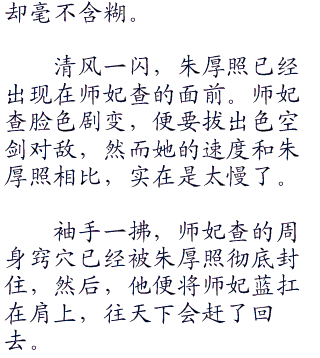 却毫不含糊。
清风一闪，朱厚照已经
出现在师妃查的面前。师妃
查脸色剧变，便要拔出色空
剑对敌，然而她的速度和朱
厚照相比，实在是太慢了。
袖手一拂，师妃查的周
身窍穴已经被朱厚照彻底封
住，然后，他便将师妃蓝扛
在肩上，往天下会赶了回
去。